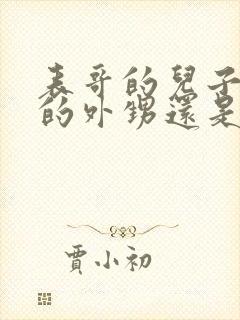 表哥的兒子
的外甥還是
賈小初